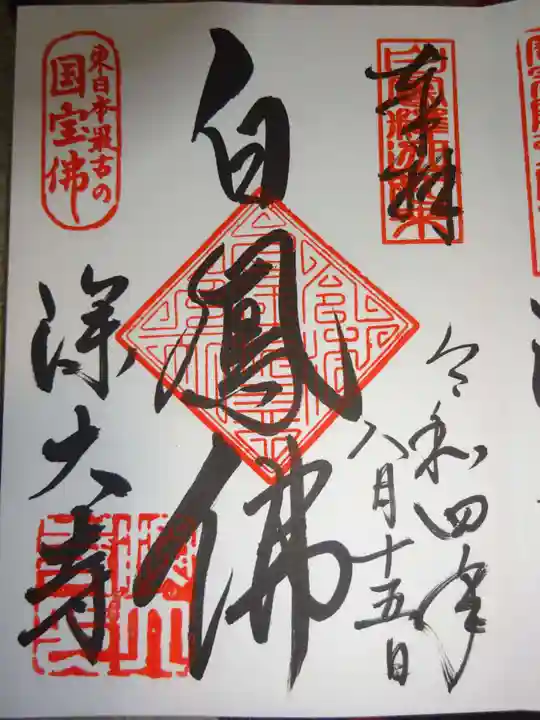 奉拝
令和四年
八月十五日
白鳳佛
東日本最古の
国宝佛
深大寺